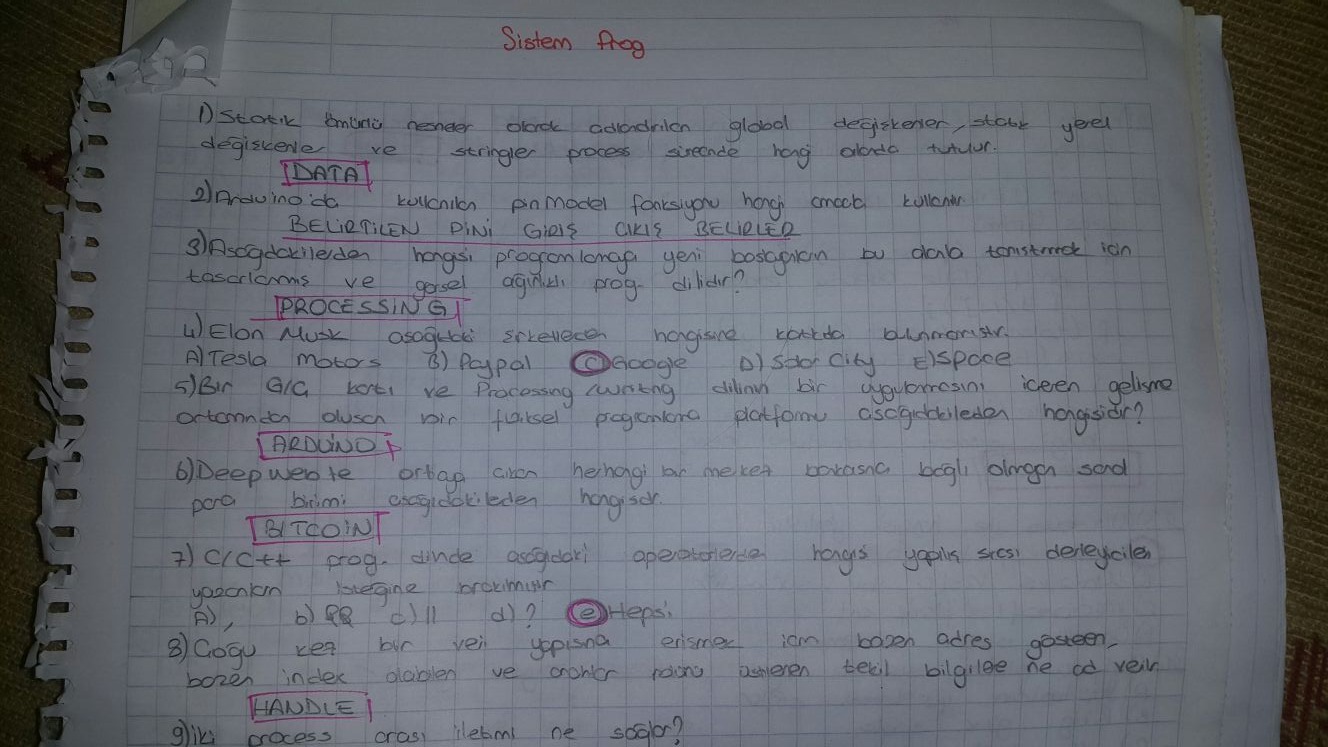 Sistem Prog
1) Statik ömürlü nesneler olarak adlandırılan global değişkenler, statik yerel
değişkenler ve stringler process sürecinde hangi alanda tutulur.
DATA
2) Arduino'da kullanılan pinModel fonksiyonu hangi amaçla kullanılır.
BELİRTİLEN PİNİ GİRİŞ ÇIKIŞ BELİRLER
3) Aşağıdakilerden hangisi programlamaya yeni başlayanların bu alanla tanıştırmak için
tasarlanmış ve görsel ağırlıklı prog. dilidir?
PROCESSING
4) Elon Musk aşağıdaki şirketlerden hangisine katkıda bulunmamıştır.
A) Tesla Motors B) Paypal C) Google D) Solar City E) Space
5) Bir G/Ç kartı ve Processing/wiring dilinin bir uygulamasını içeren gelişme
ortamından oluşan bir fiziksel programlama platformu aşağıdakilerden hangisidir?
ARDUİNO
6) Deep web'te ortaya çıkan herhangi bir merkez bankasına bağlı olmayan sanal
para birimi aşağıdakilerden hangisidir.
BİTCOİN
7) C/C++ prog. dilinde aşağıdaki operatörlerden hangisi yapılış sırası derleyicileri
yazanların isteğine bırakılmıştır
A) , b) && c) || d) ? e) Hepsi
8) Çoğu kez bir veri yapısına erişmek için bazen adres gösteren,
bazen index olabilen ve anahtar rolünü üstlenen tekil bilgilere ne ad verilir
HANDLE
9) iki process arası iletimi ne sağlar?